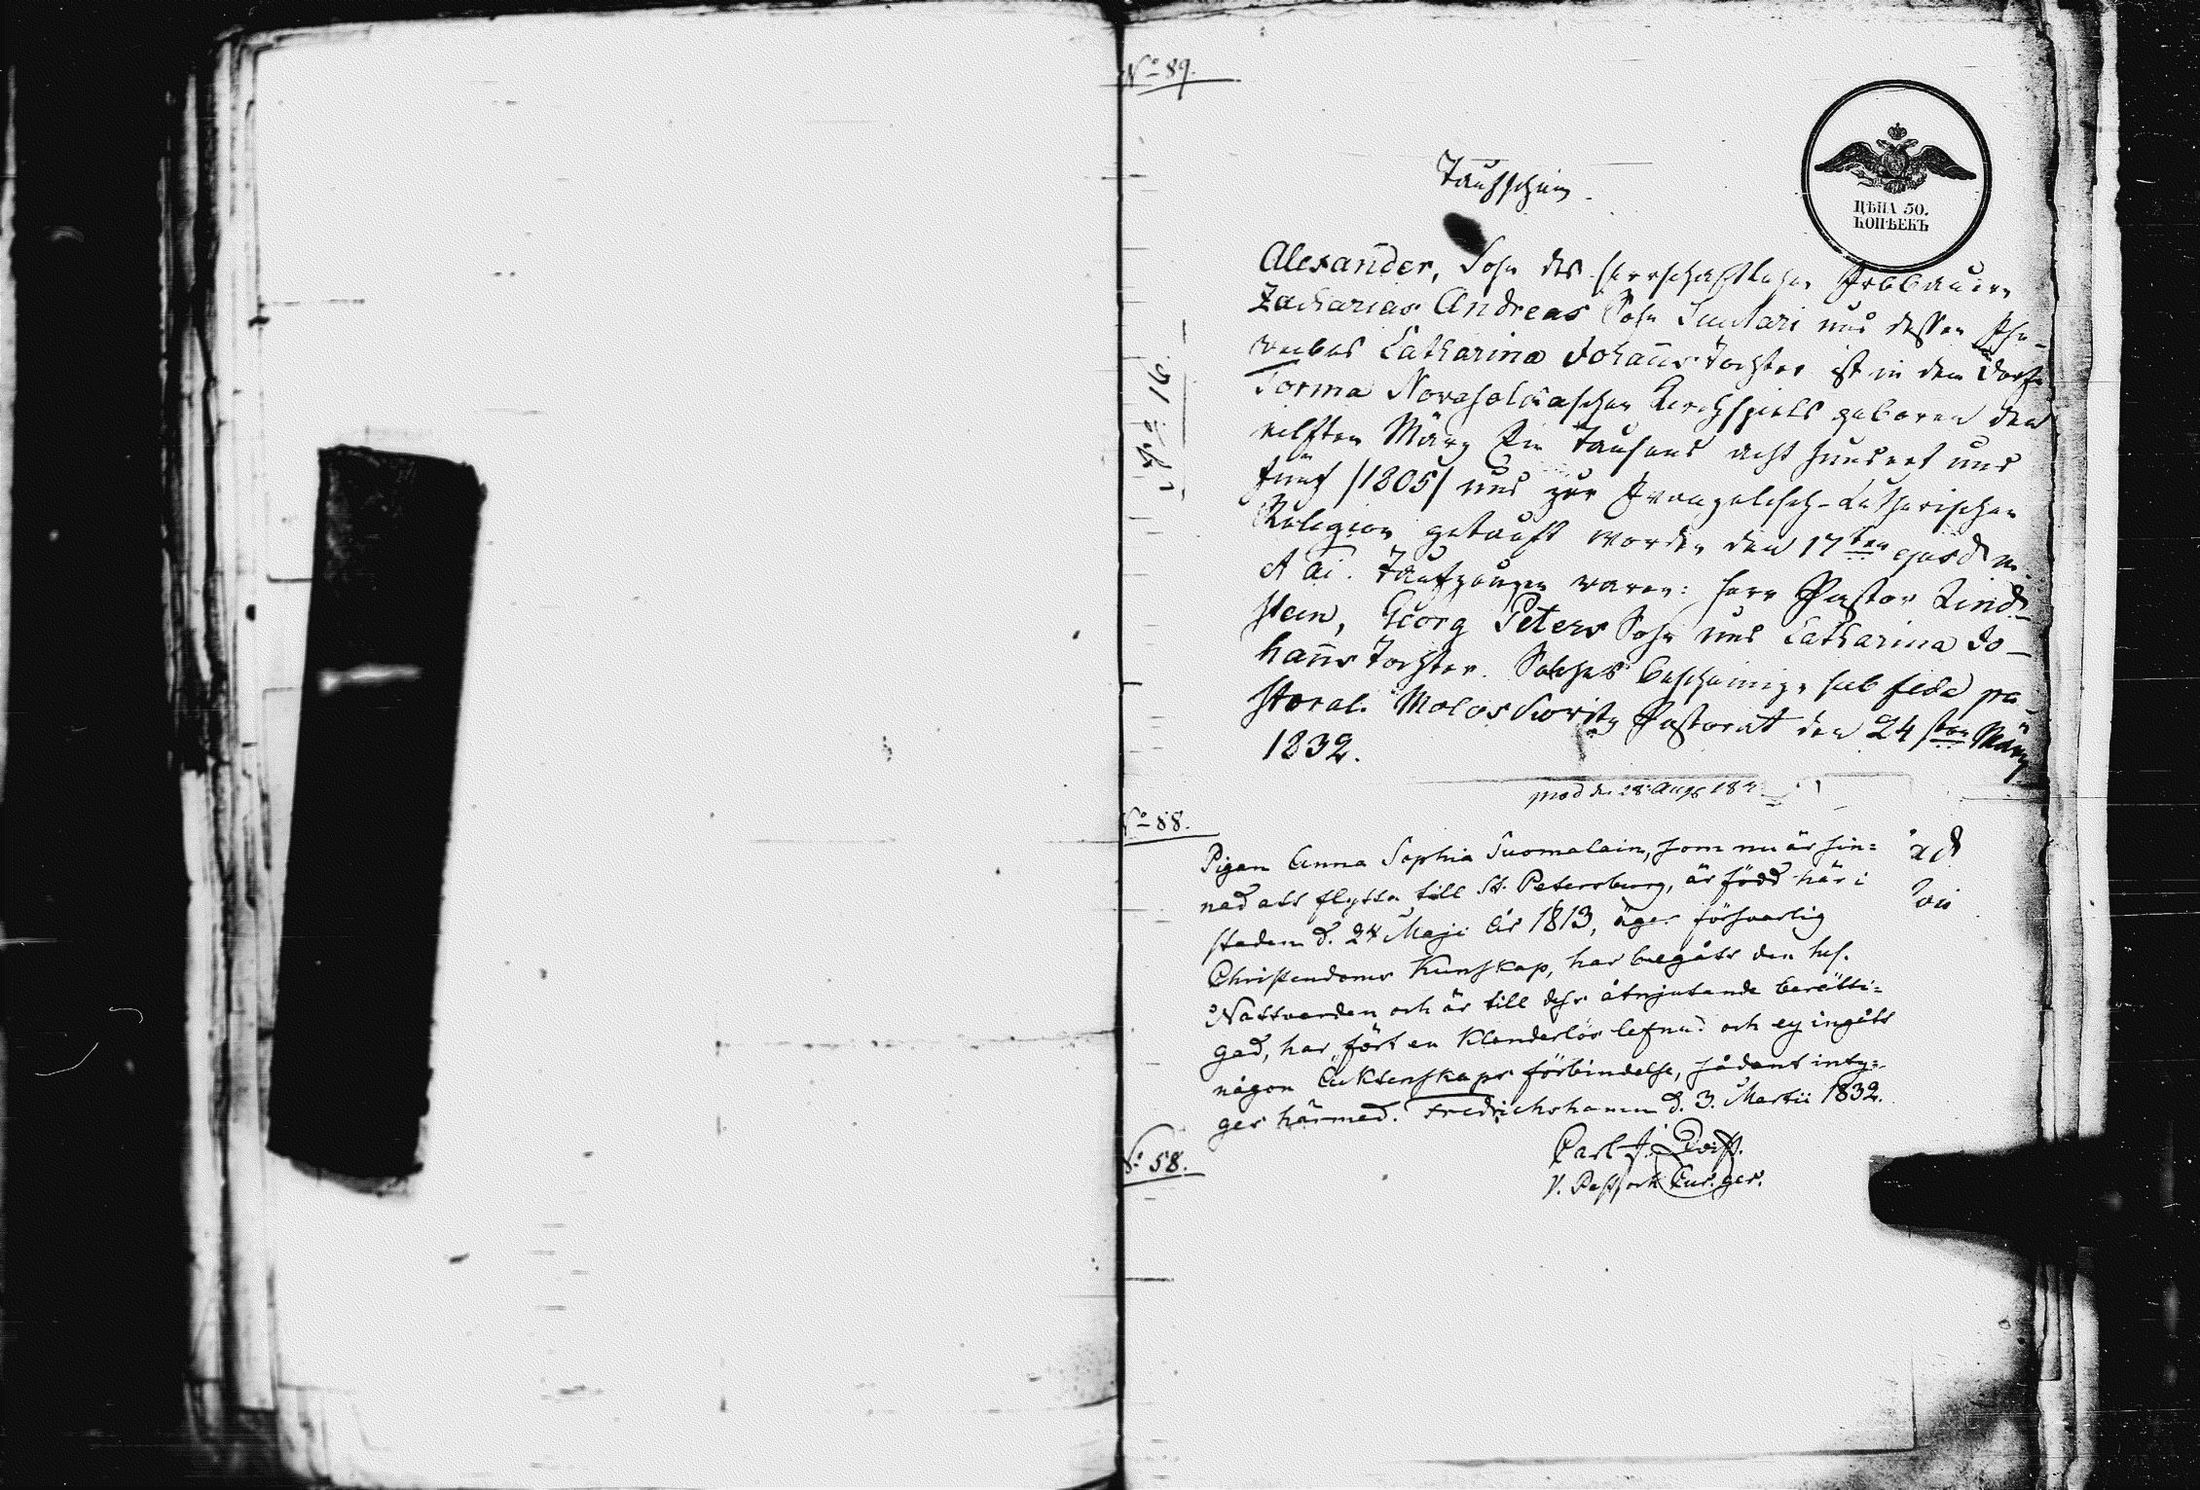 No 89.
Taufschein.
ЦѢНА 50.
КОПѢЕКЪ
Alexander, Sohn des herrschaftlichen Erbbauern
Zacharias Andreas Sohn und dessen Ehe-
weibes Catharina Johanns Tochter ist in dem Dorfe
Torma Kirchspiels geboren den
eilften März Ein Tausend acht hundert und
fünf /1805/ und zur Evangelisch-Lutherischen
Religion getauft worden den 17ten ejusdem
et ai. Taufzeugen waren: Herr Pastor Lind-
stein, Georg Peters Sohn und Catharina Jo-
hanns Tochter. Solches bescheinige sub fide pa-
storal. Moloskowitz Pastorat den 24sten März
1832.
No 88.
Pigan Anna Sophia Suomalain, som nu är sin-
nad att flytta till St. Petersburg, är född här i
staden d. 24 Maji år 1813, äger försvarlig
Christendoms Kunskap, har begått den hel.
Nattvarden och är till dess åtnjutande berätti-
gad, har fört en Klanderlös lefnad och ej ingått
någon Äktenskaps förbindelse, sådant inty-
gar härmed. Fredrichshamn d. 3. Martii 1832.
Carl J.
V. Pastor
No 58.